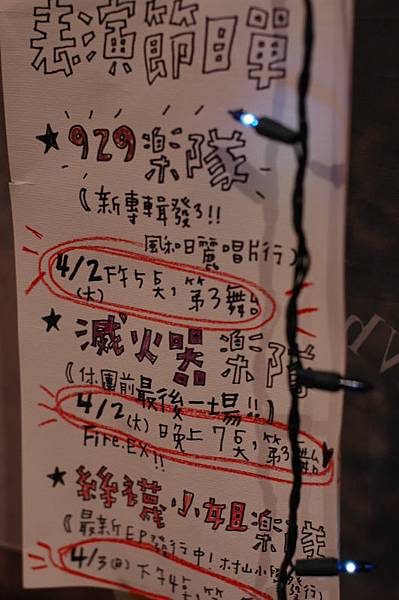 表演節目單
★929樂隊
(新專輯發了!!
風和日麗唱片行)
4/2下午5點,第3舞台
(六)
★滅火器樂隊
(休團前最後一場!!)
4/2(六)晚上7點,第3舞台
Fire.EX!!
★絲襪小姐樂隊
(最新EP發行中!木村山小隊發行)
4/3(日)下午4點,第